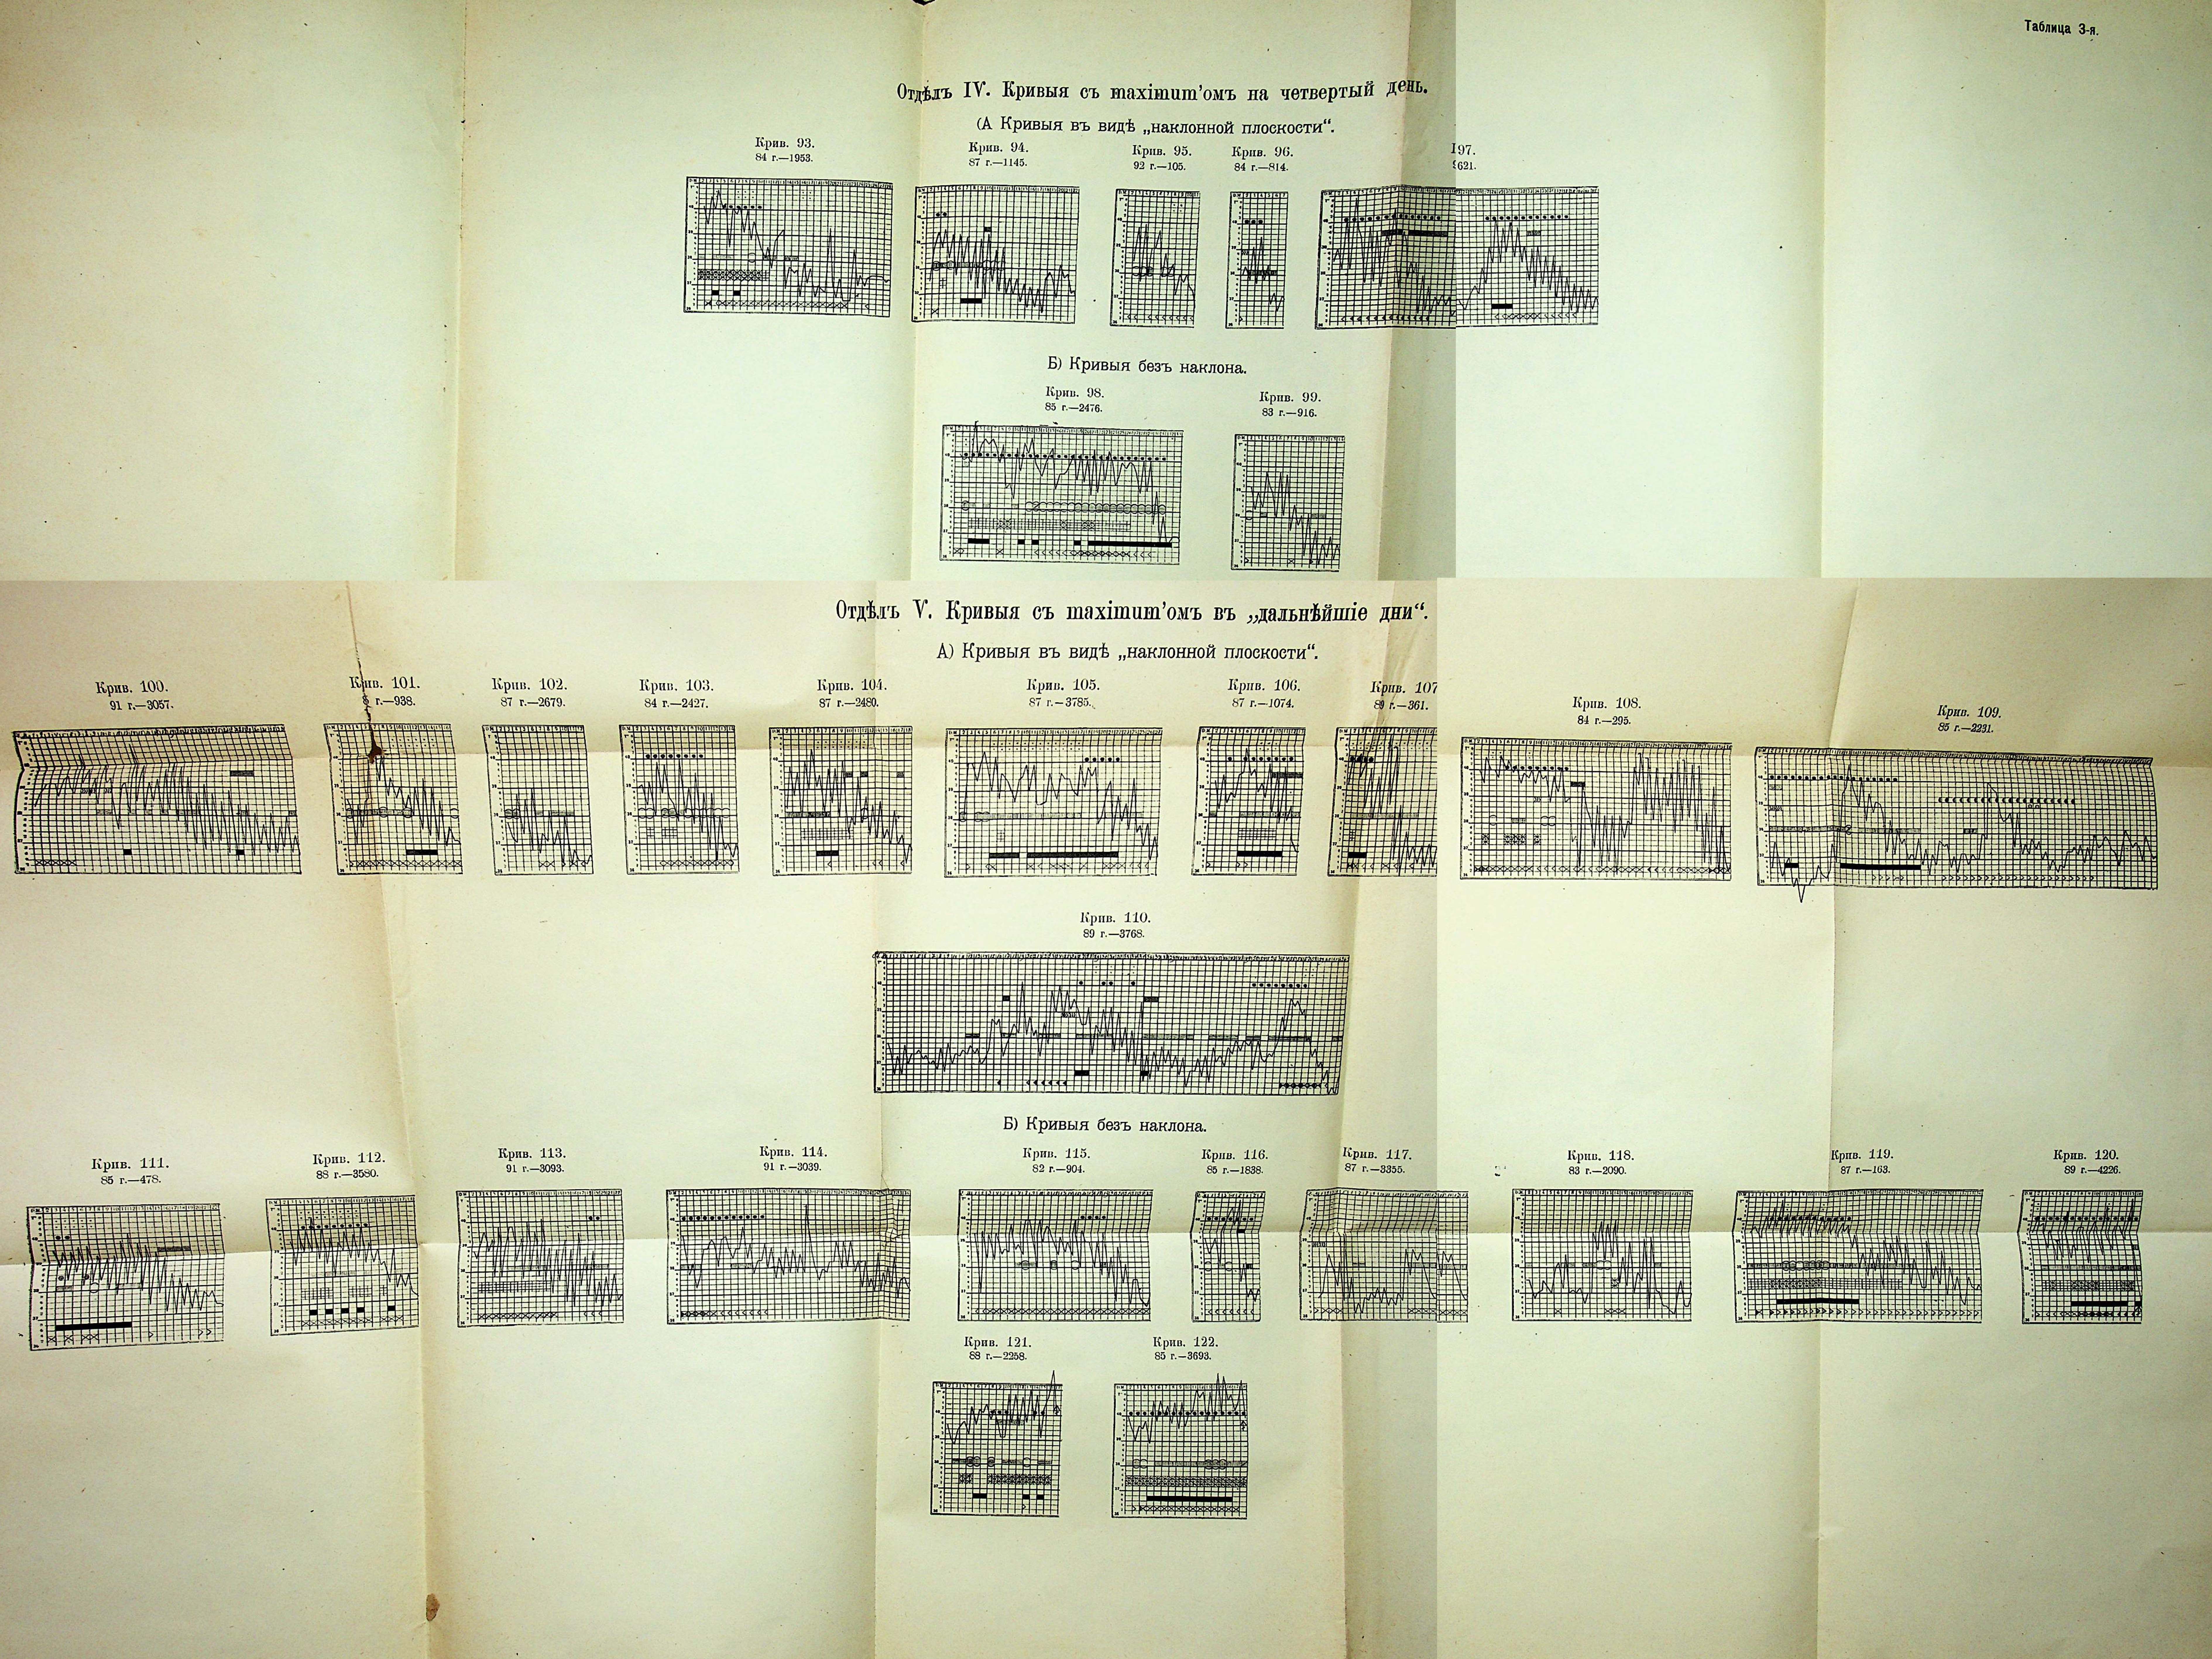 Таблица 3-я.
Отдѣлъ IV. Кривыя съ maximum'омъ на четвертый день.
(А Кривыя въ видѣ „наклонной плоскости“.
Крив. 93.
84 г.—1953.
Крив. 94.
87 г.—1145.
Крив. 95.
92 г.—105.
Крив. 96.
84 г.—814.
97.
621.
Б) Кривыя безъ наклона.
Крив. 98.
85 г.—2476.
Крив. 99.
83 г.—916.
Отдѣлъ V. Кривыя съ maximum'омъ въ „дальнѣйшіе дни“.
А) Кривыя въ видѣ „наклонной плоскости“.
Крив. 100.
91 г.—3057.
Крив. 101.
г.—938.
Крив. 102.
87 г.—2679.
Крив. 103.
84 г.—2427.
Крив. 104.
87 г.—2480.
Крив. 105.
87 г.—3785.
Крив. 106.
87 г.—1074.
Крив. 107
89 г.—361.
Крив. 108.
84 г.—295.
Крив. 109.
85 г.—2231.
Крив. 110.
89 г.—3768.
Б) Кривыя безъ наклона.
Крив. 111.
85 г.—478.
Крив. 112.
88 г.—3580.
Крив. 113.
91 г.—3093.
Крив. 114.
91 г.—3039.
Крив. 115.
82 г.—904.
Крив. 116.
85 г.—1838.
Крив. 117.
87 г.—3355.
Крив. 118.
83 г.—2090.
Крив. 119.
87 г.—163.
Крив. 120.
89 г.—4226.
Крив. 121.
88 г.—2258.
Крив. 122.
85 г.—3693.